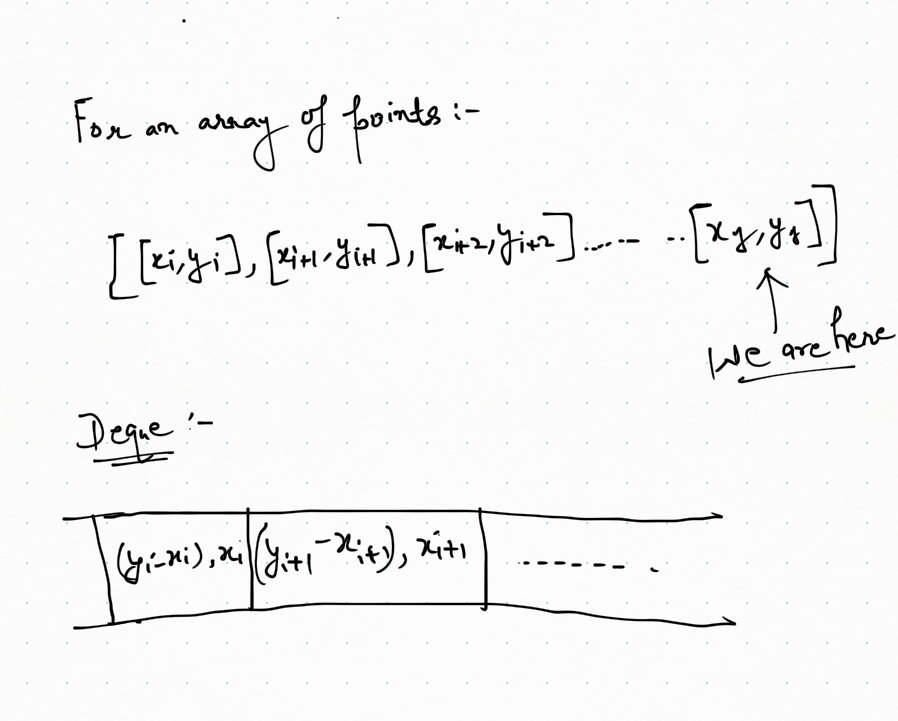 For an array of points :-
[[xi,yi],[xi+1,yi+1],[xi+2,yi+2]........[xj,yj]]
We are here
Deque :-
(yi-xi),xi (yi+1-xi+1),xi+1 -------.